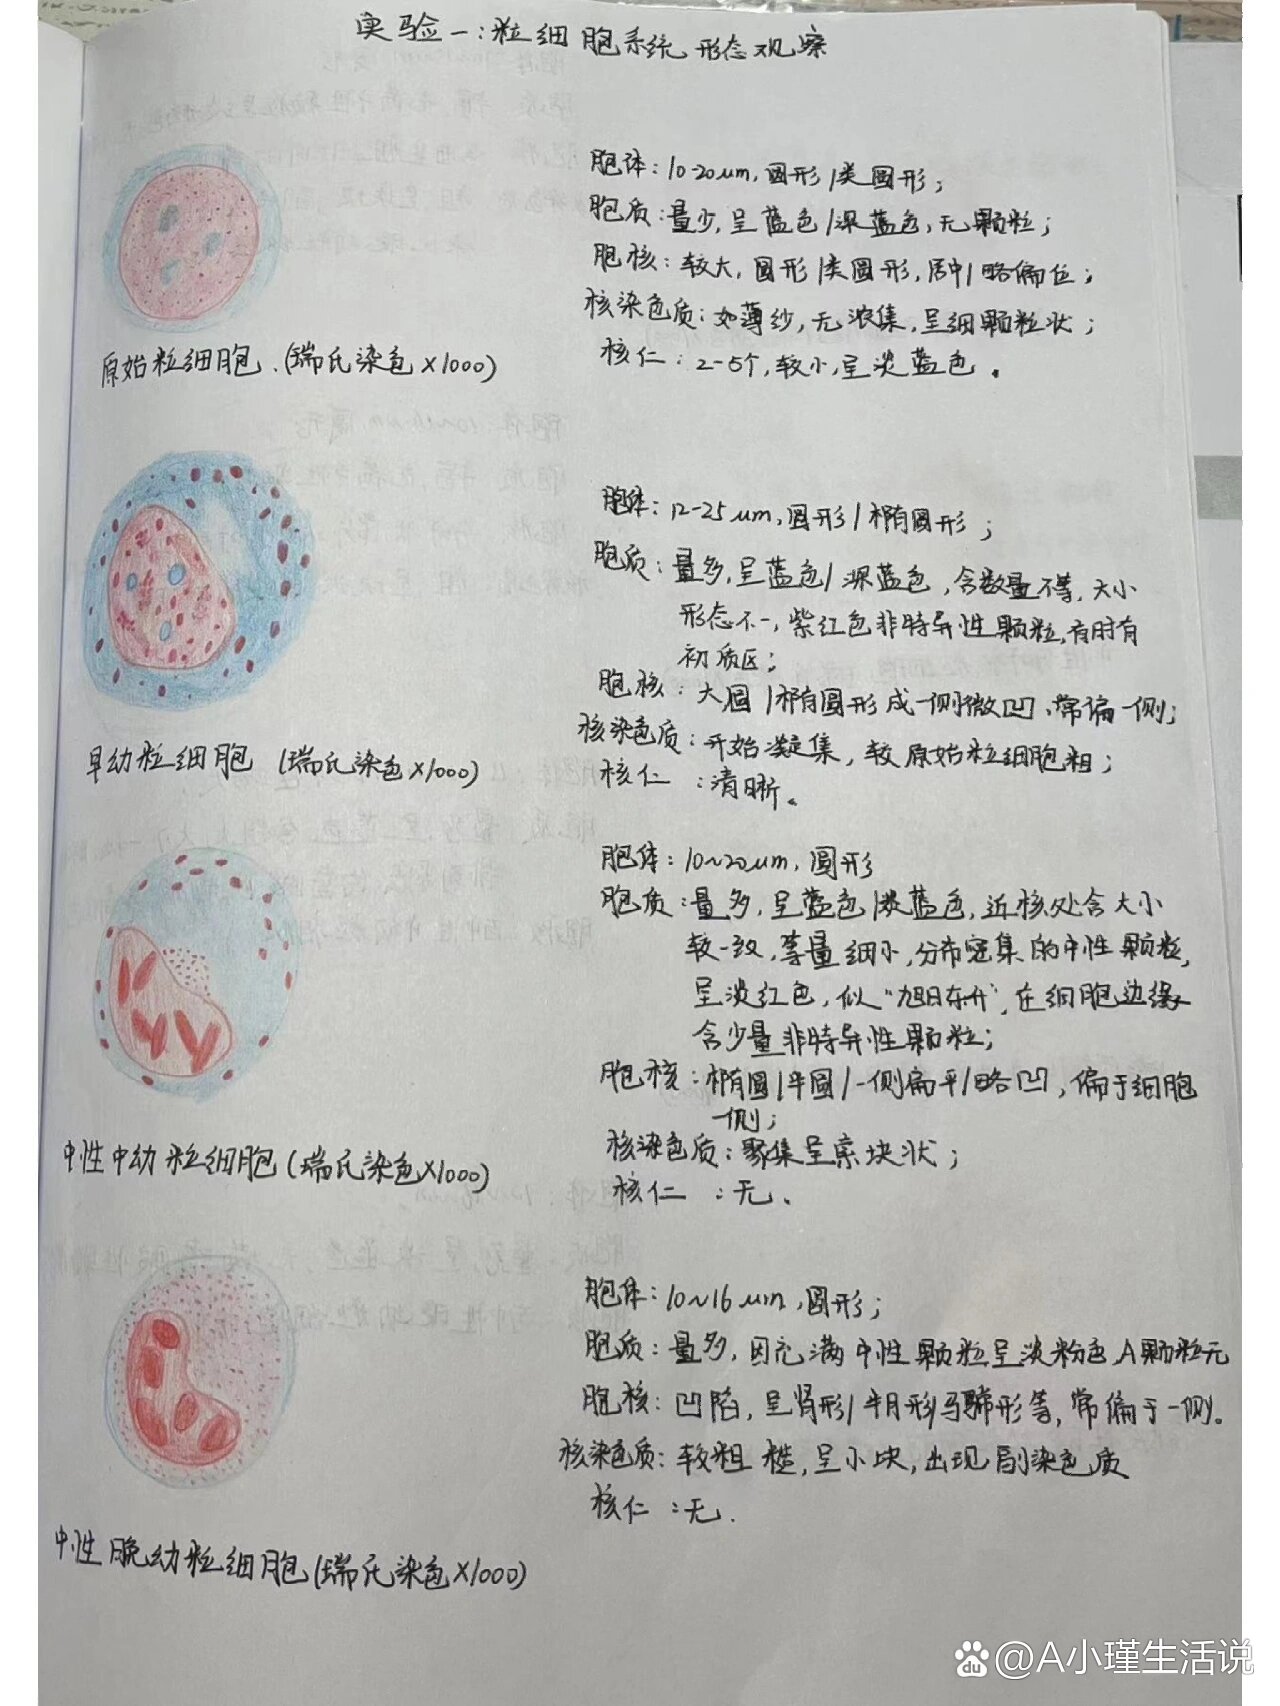 实验一:粒细胞系统形态观察
胞体:10-20μm,圆形/类圆形;
胞质:量少,呈蓝色/深蓝色,无颗粒;
胞核:较大,圆形/类圆形,居中/略偏位;
核染色质:如薄纱,无浓集,呈细颗粒状;
核仁:2-5个,较小,呈淡蓝色。
原始粒细胞.(瑞氏染色×1000)
胞体:12-25μm,圆形/椭圆形;
胞质:量多,呈蓝色/深蓝色,含数量不等,大小
形态不一,紫红色非特异性颗粒,有时有
初质区;
胞核:大,圆/椭圆形或一侧微凹、常偏一侧;
核染色质:开始凝集,较原始粒细胞粗;
核仁:清晰。
早幼粒细胞(瑞氏染色×1000)
胞体:10~20μm,圆形
胞质:量多,呈蓝色/淡蓝色,近核处含大小
较一致,等量细小,分布密集的中性颗粒,
呈淡红色,似"旭日东升",在细胞边缘
含少量非特异性颗粒;
胞核:椭圆/半圆/一侧扁平/略凹,偏于细胞
一侧;
核染色质:聚集呈索块状;
核仁:无.
中性中幼粒细胞(瑞氏染色×1000)
胞体:10~16μm,圆形;
胞质:量多,因充满中性颗粒呈淡粉色,A颗粒无
胞核:凹陷,呈肾形/半月形/马蹄形等,常偏于一侧。
核染色质:较粗糙,呈小块,出现副染色质
核仁:无.
中性晚幼粒细胞(瑞氏染色×1000)
du @A小瑾生活说